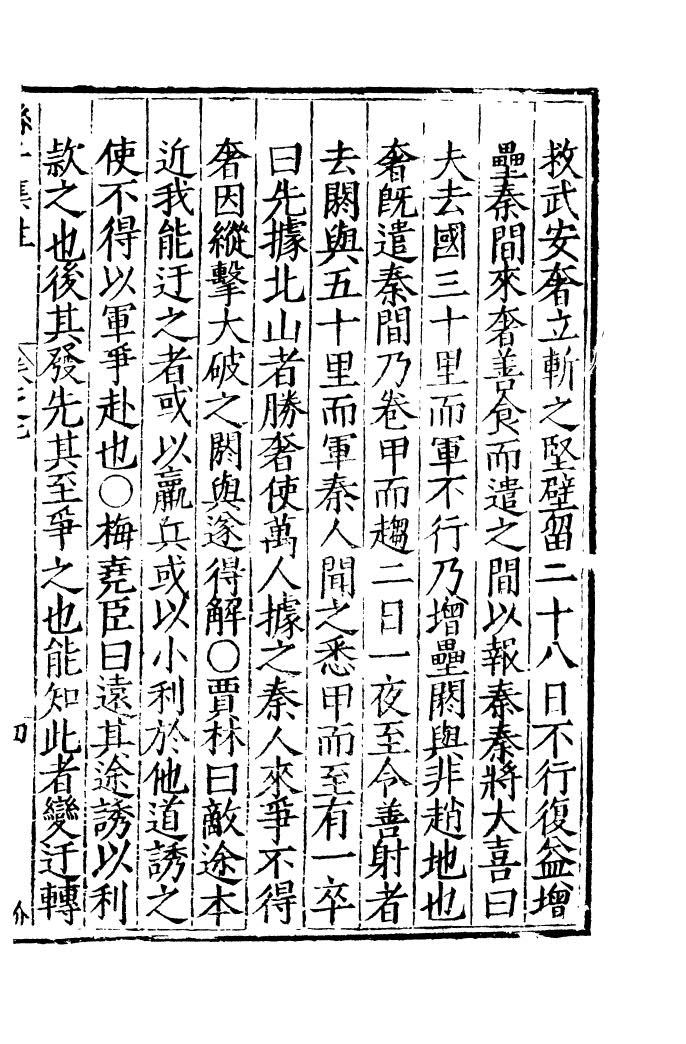 救武安奢立斬之堅壁留二十八日不行復益增
壘秦間來奢善食而遣之間以報秦秦將大喜曰
夫去國三十里而軍不行乃增壘閼與非趙地也
奢旣遣秦間乃卷甲而趨二日一夜至令善射者
去閼與五十里而軍秦人聞之悉甲而至有一卒
曰先據北山者勝奢使萬人據之秦人來爭不得
奢因縱擊大破之閼與遂得解〇賈林曰敵途本
近我能迂之者或以羸兵或以小利於他道誘之
使不得以軍爭赴也〇梅堯臣曰遠其途誘以利
款之也後其發先其至爭之也能知此者變迂轉